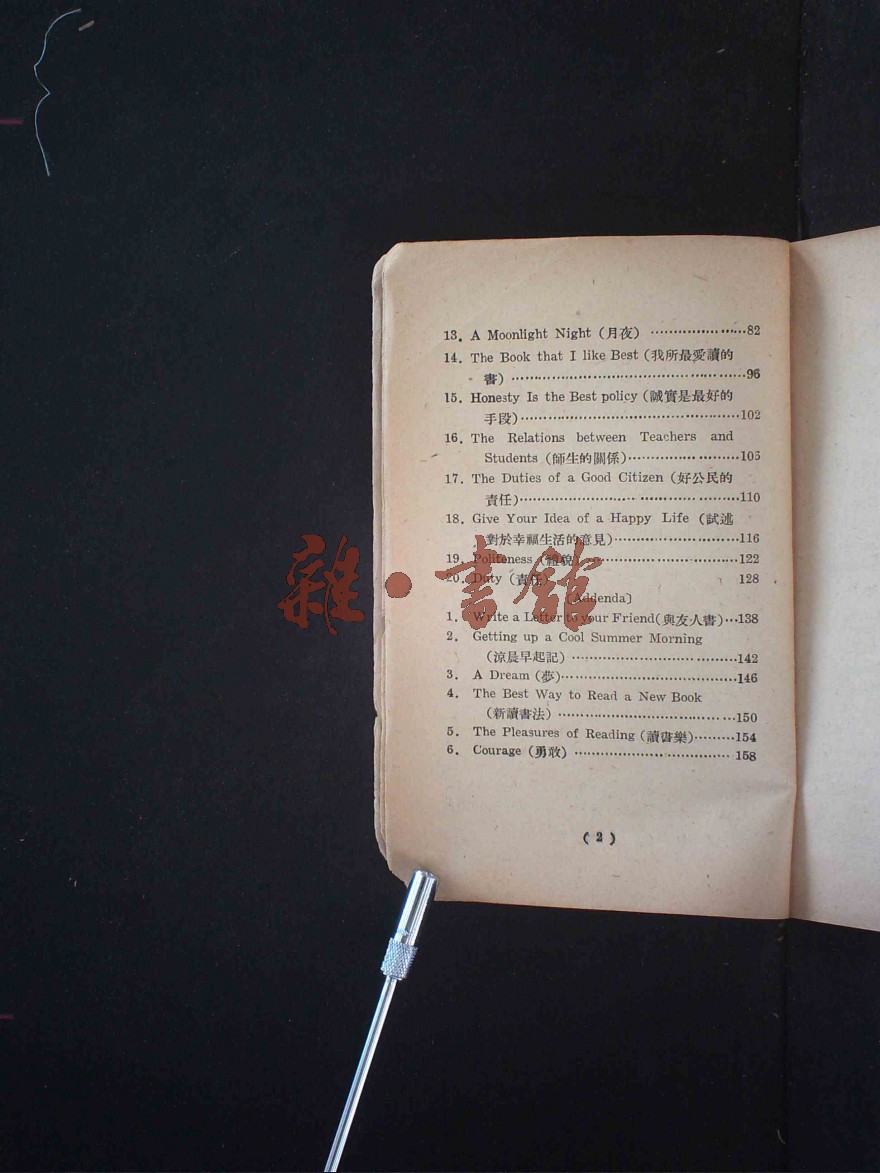 13. A Moonlight Night (月夜) ·····················82
14. The Book that I like Best (我所最愛讀的
書) ··················································96
15. Honesty Is the Best policy (誠實是最好的
手段)················································102
16. The Relations between Teachers and
Students (師生的關係)························105
17. The Duties of a Good Citizen (好公民的
責任)················································110
18. Give Your Idea of a Happy Life (試述
對於幸福生活的意見)···························116
19. Politeness (禮貌) ·································122
20. Duty (責任) 128
〔Addenda〕
1. Write a Letter to your Friend(與友人書)···138
2. Getting up a Cool Summer Morning
(涼晨早起記) ····································142
3. A Dream (夢)·······································146
4. The Best Way to Read a New Book
(新讀書法) ·······································150
5. The Pleasures of Reading (讀書樂)·········154
6. Courage (勇敢) ··································158
(2)
雜·書館